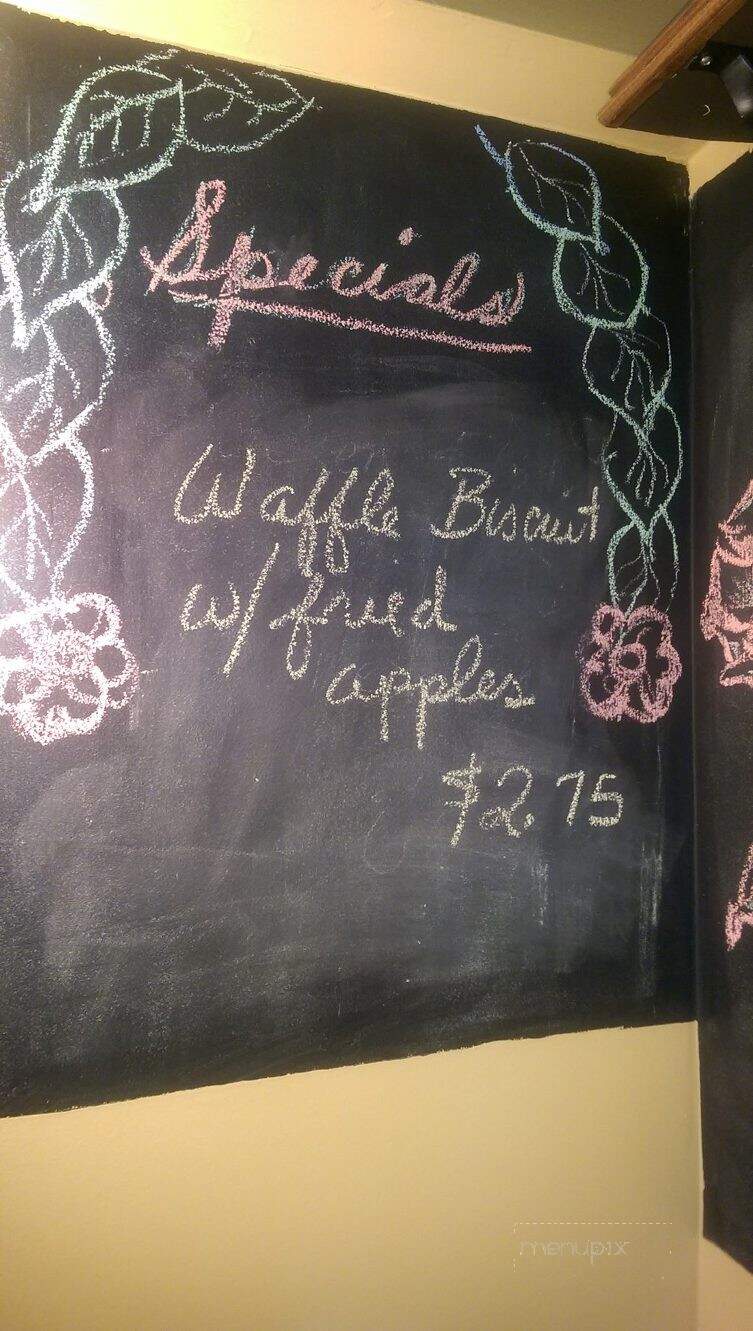 Specials
Waffle Biscuit
w/ fried
apples
$2.75
menupix